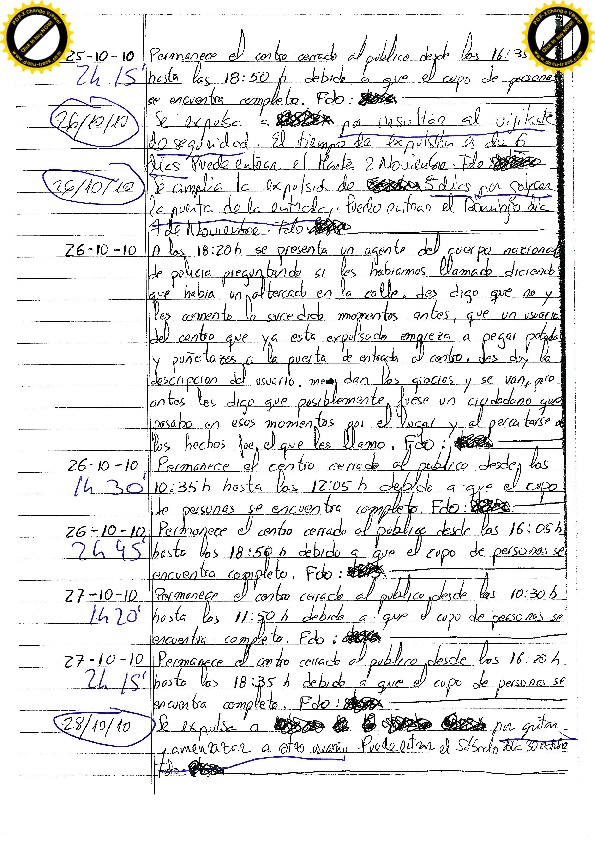 25-10-10 Permanece el centro cerrado al publico desde las 16:35
2h 15' hasta las 18:50 h debido a que el cupo de personas
se encuentra completo. Fdo:
26/10/10 Se expulsa a por insultar al vigilante
de seguridad. El tiempo de expulsión es de 6
dias Puede entrar el Martes 2 Noviembre. Fdo
26/10/10 Se amplia la expulsión de 5 dias por golpear
la puerta de la entrada. Puede entrar el Domingo dia
7 de Noviembre. Fdo
26-10-10 A las 18:20h se presenta un agente del cuerpo nacional
de policia preguntando si les habiamos llamado diciendo
que habia un altercado en la calle. les digo que no y
les comento lo sucedido momentos antes, que un usuario
del centro que ya esta expulsado empieza a pegar patadas
y puñetazos a la puerta de entrada al centro. les doy la
descripcion del usuario. me dan las gracias y se van, pero
antes les digo que posiblemente, fuese un ciudadano que
pasaba en esos momentos por el local y al percatarse de
los hechos fue el que les llamo. Fdo:
26-10-10 Permanece el centro cerrado al publico desde las
1h 30' 10:35h hasta las 12:05h debido a que el cupo
de personas se encuentra completo. Fdo:
26-10-10 Permanece el centro cerrado al publico desde las 16:05h
2h 45' hasta las 18:50h debido a que el cupo de personas se
encuentra completo. Fdo:
27-10-10 Permanece el centro cerrado al publico desde las 10:30h
1h 20' hasta las 11:50h debido a que el cupo de personas se
encuentra completo. Fdo:
27-10-10 Permanece el centro cerrado al publico desde las 16:20h
2h 15' hasta las 18:35h debido a que el cupo de personas se
encuentra completo. Fdo:
28/10/10 Se expulsa a por gritar
y amenazar a otro usuario. Puede entrar el Sábado dia 30 octubre
Fdo